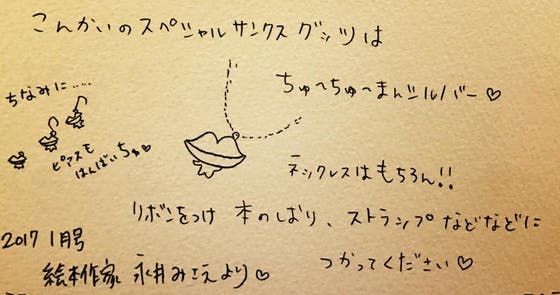 こんかいのスペシャルサンクスグッツは
ちゅ〜ちゅ〜まんシルバー♡
ちなみに……
ピアスも
はんばいちゅ♡
ネックレスはもちろん!!
リボンをつけ 本のしおり、ストラップなどなどに
つかってください♡
2017 1月号
絵本作家 永井みさえより♡